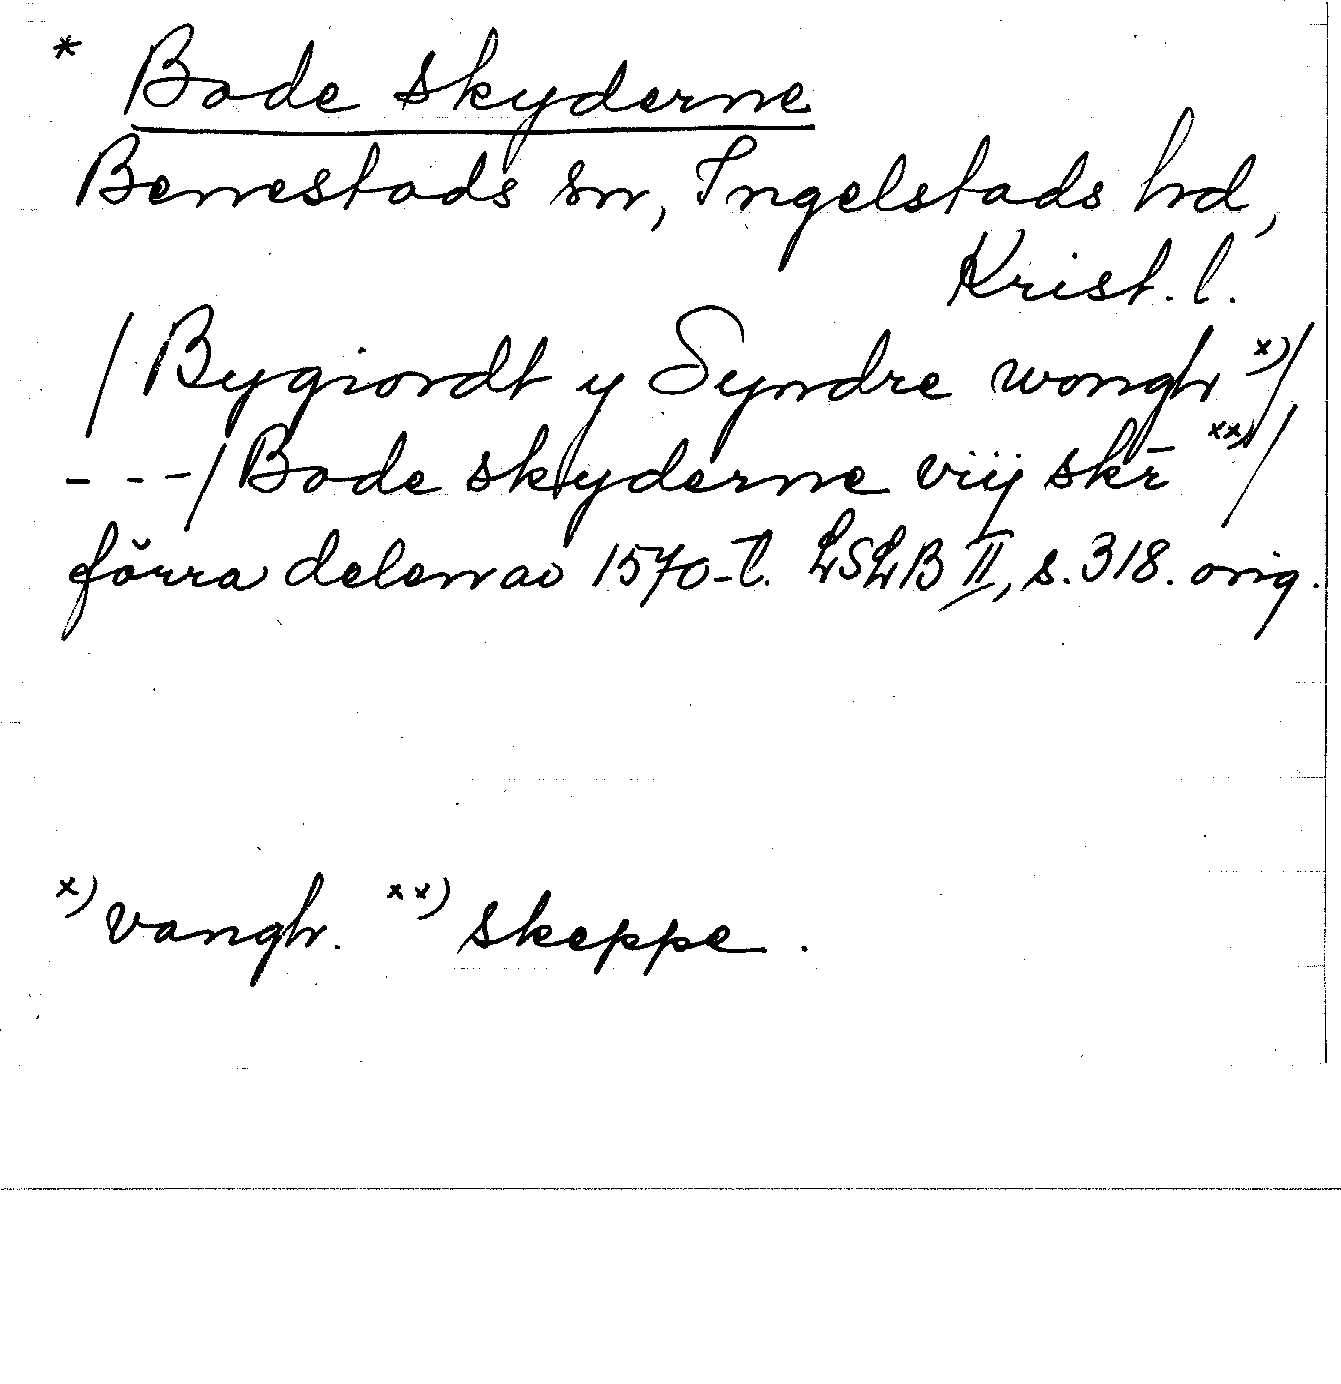 * Bode skyderne
Benestads sn, Ingelstads hd,
Krist. l.
/Bygiordt y Syndre wongh x)/
---/Bode skyderne viij skr̄ xx)/
förra delen av 1570-t. LSLB II, s. 318. orig.
x) vangh. xx) skeppe.